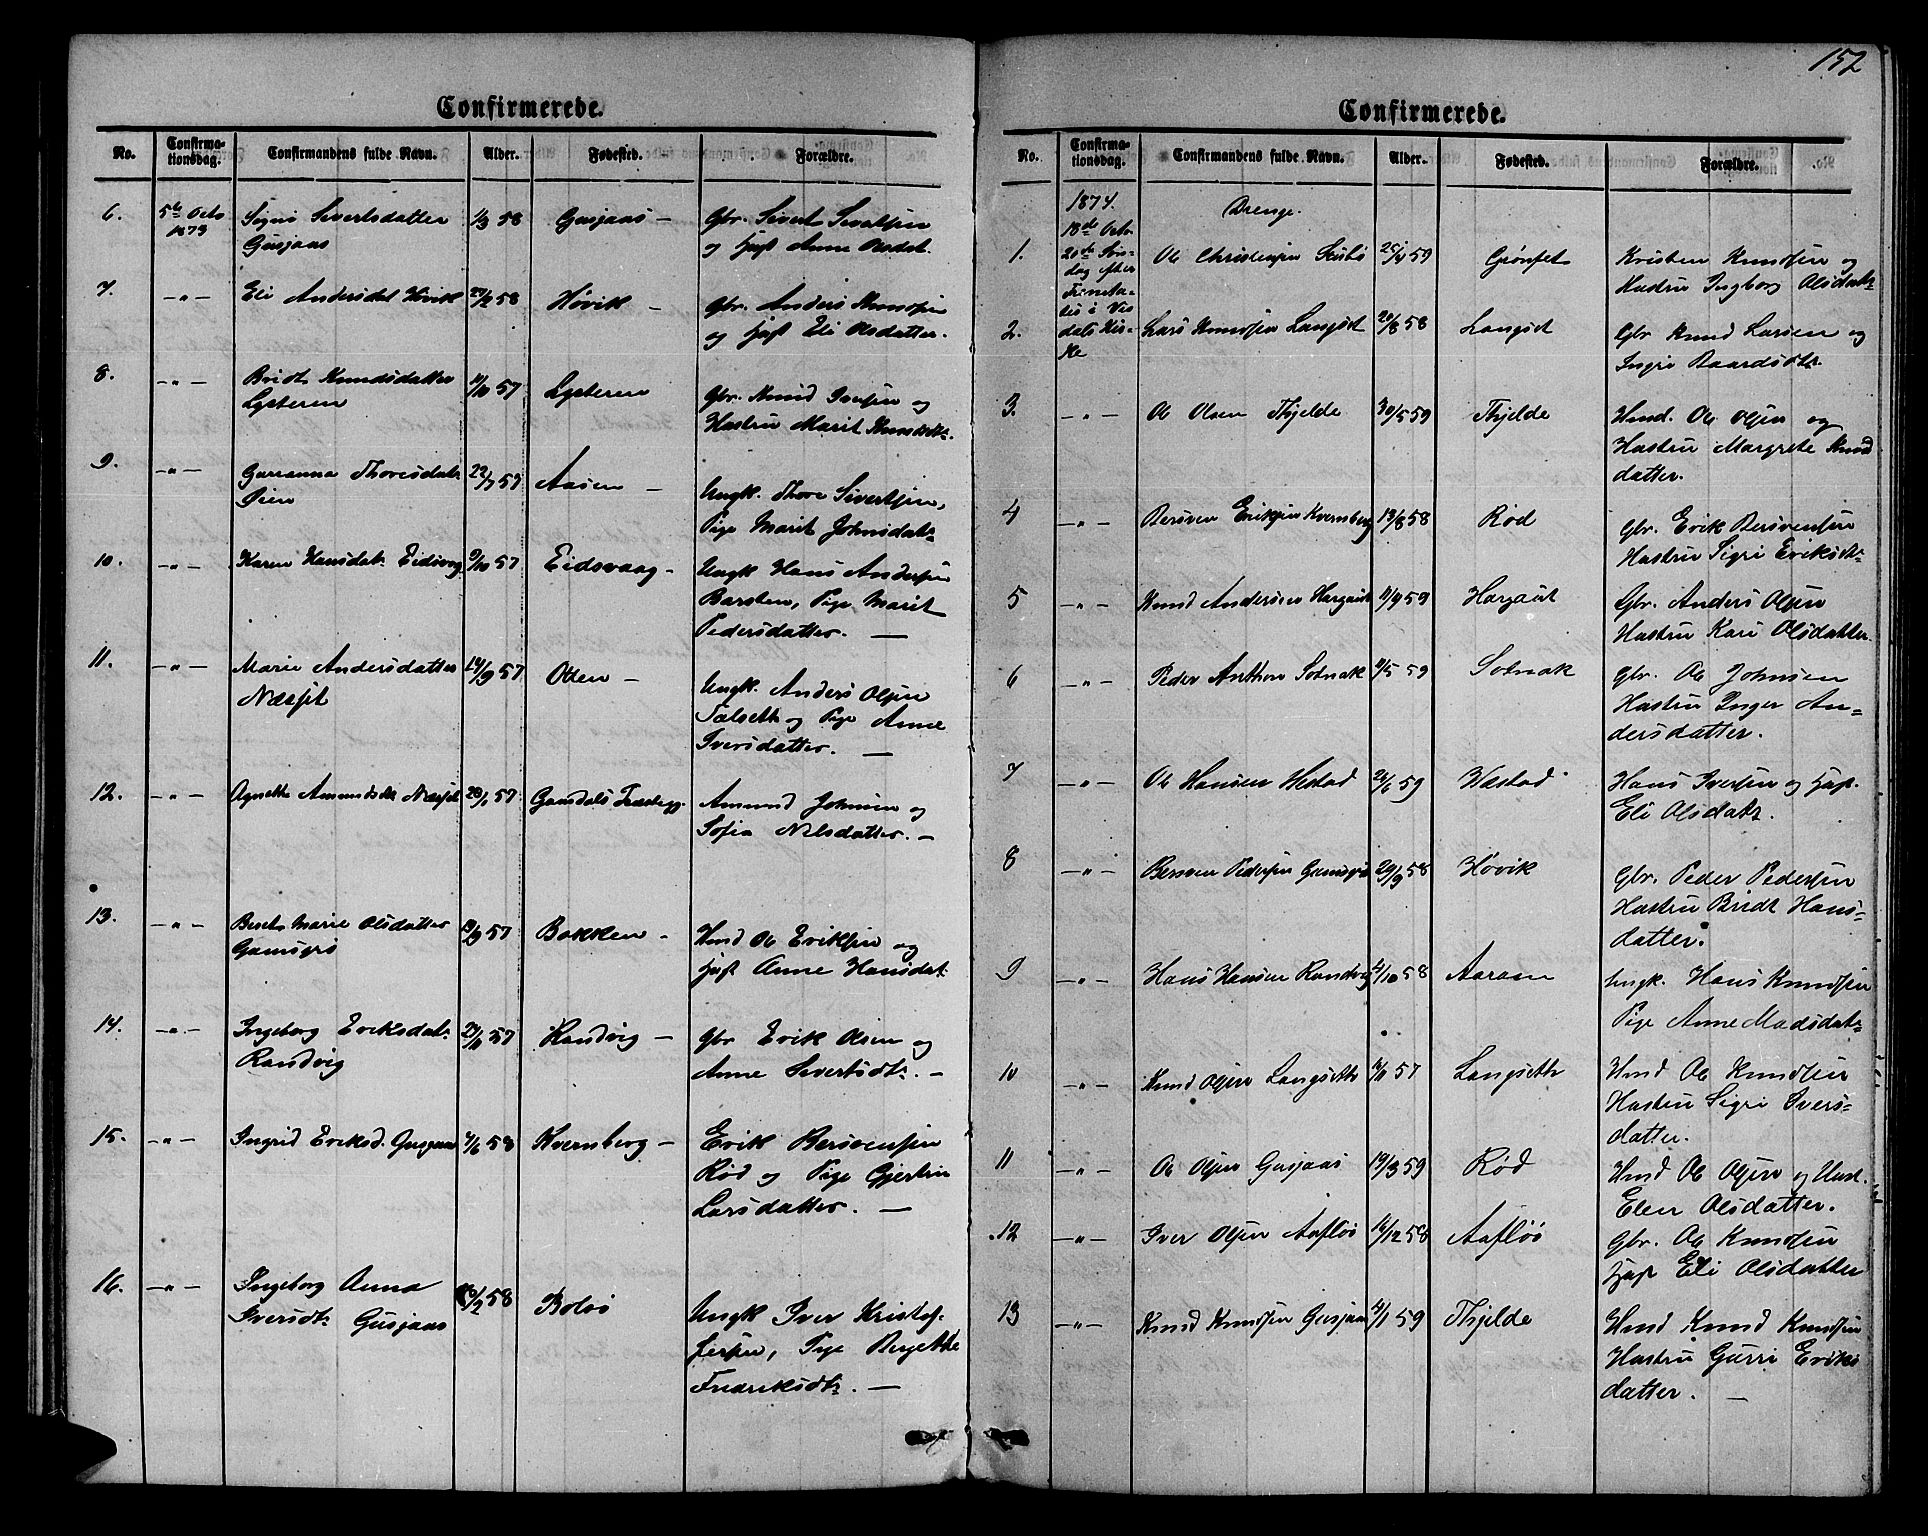 152
Confirmerede.
No.
Confirma-
tionsdag.
Confirmandens fulde Navn.
Alder.
Fødested.
Forældre.
6.
5te Octo
1873
Sigri Sivertsdatter
Gusjaas
1/3 58
Gusjaas —
Gbr. Sivert Sivertsen
og Hust Anne Olsdat.
7.
—„—
Eli Andersdat Høvik
58
Høvik —
Gbr. Anders Knudsen
og Hust Eli Olsdatter.
8.
—„—
Bridt Knudsdatter
Lysteren
11/10 57
Lysteren
Gbr. Knud Iversen og
Hustru Marit Knudsdtr.
9.
—„—
Guruanna Thoresdatr
Øien
22/7 57
Aasen —
Ungk. Thore Sivertsen,
Pige Marit Johnsdatr
10.
—„—
Karen Hansdatr Eidsvag
9/10 57
Eidsvaag —
Ungk Hans Andersen
Barsten, Pige Marit
Pedersdatter. —
11.
—„—
Marie Andersdatter
Næsjet
14/9 57
Otten —
Ungk. Anders Olsen
Talseth og Pige Anne
Iversdatter. —
12.
—„—
Agnethe Amundsdtr Næsjet
28/1 57
Amund Johnsen og
Sofia Nilsdatter. —
13.
—„—
Beret Marie Olsdatter
Gamsgrø
57
Bakken —
Hmd Ole Eriksen og
Hust Anne Hansdat.
14.
—„—
Ingeborg Eriksdatr
Randvig
57
Randvig —
Gbr Erik Olsen og
Anne Sivertsdtr. —
15.
—„—
Ingrid Eriksd. Gusjaas
4/6 58
Kvernberg —
Erik Bersvensen
Rød og Pige Gjertrin
Larsdatter. —
16.
—„—
Ingeborg Anna
Iversdtr Gusjaas
58
Bolsø
Ungk Iver Kristof-
fersen, Pige Bergethe
Fredriksdtr. —
Confirmerede.
No.
Confirma-
tionsdag.
Confirmandens fulde Navn.
Alder.
Fødested.
Forældre.
1874.
18de Octr.
20de Søn-
dag efter
Trinita-
tis i Vis-
dals Kir-
ke
Drenge.
1.
Ole Christensen Stubø
25/4 59
Grønset
Kristen Knudsen og
Hustru Ingborg Olsdatr
2.
Lars Knudsen Langset
20/8 58
Langset
Gbr Knud Larsen og
Ingri Baardsdtr.
3.
—„—
Ole Olsen Thjelde
30/5 59
Thjelde
Hmd. Ole Olsen og
Hustru Margrete Knud
datter.
4
—„—
Bersven Eriksen Kvernberg
13/8 58
Rød
Gbr. Erik Bersvensen
Hustru Sigri Eriksdtr
5
—„—
Knud Andersen Hargaut
11/4 59
Hargaut
Gbr. Anders Olsen
Hustru Kari Olsdatter
6
—„—
Peder Anthon Solnak
11/5 59
Solnak
Gbr. Ole Johnsen
Hustru Inger An-
dersdatter.
7
—„—
Ole Hansen Hestad
59
Hestad
Hans Iversen og Hust.
Eli Olsdatr.
8
—„—
Bersven Pedersen Gamsgrø
29/9 58
Høvik
Gbr. Peder Pedersen
Hustru Bridt Hans-
datter.
9
—„—
Hans Hansen Randvig
4/10 58
Aaram
Ungk. Hans Knudsen
Pige Anne Madsdatr
10
—„—
Knud Olsen Langseth
57
Langseth
Hmd Ole Knudsen
Hustru Sigri Ivers-
datter.
11
—„—
Ole Olsen Gusjaas
19/3 59
Rød
Hmd Ole Olsen og Hust.
Elen Olsdatter.
12
—„—
Iver Olsen Aafløi
16/12 58
Aafløi
Gbr. Ole Knudsen
Hust Eli Olsdatter
13
—„—
Knud Knudsen Gusjaas
4/1 59
Thjelde
Hmd Knud Knudsen
Hustru Gurri Eriks
datter. —